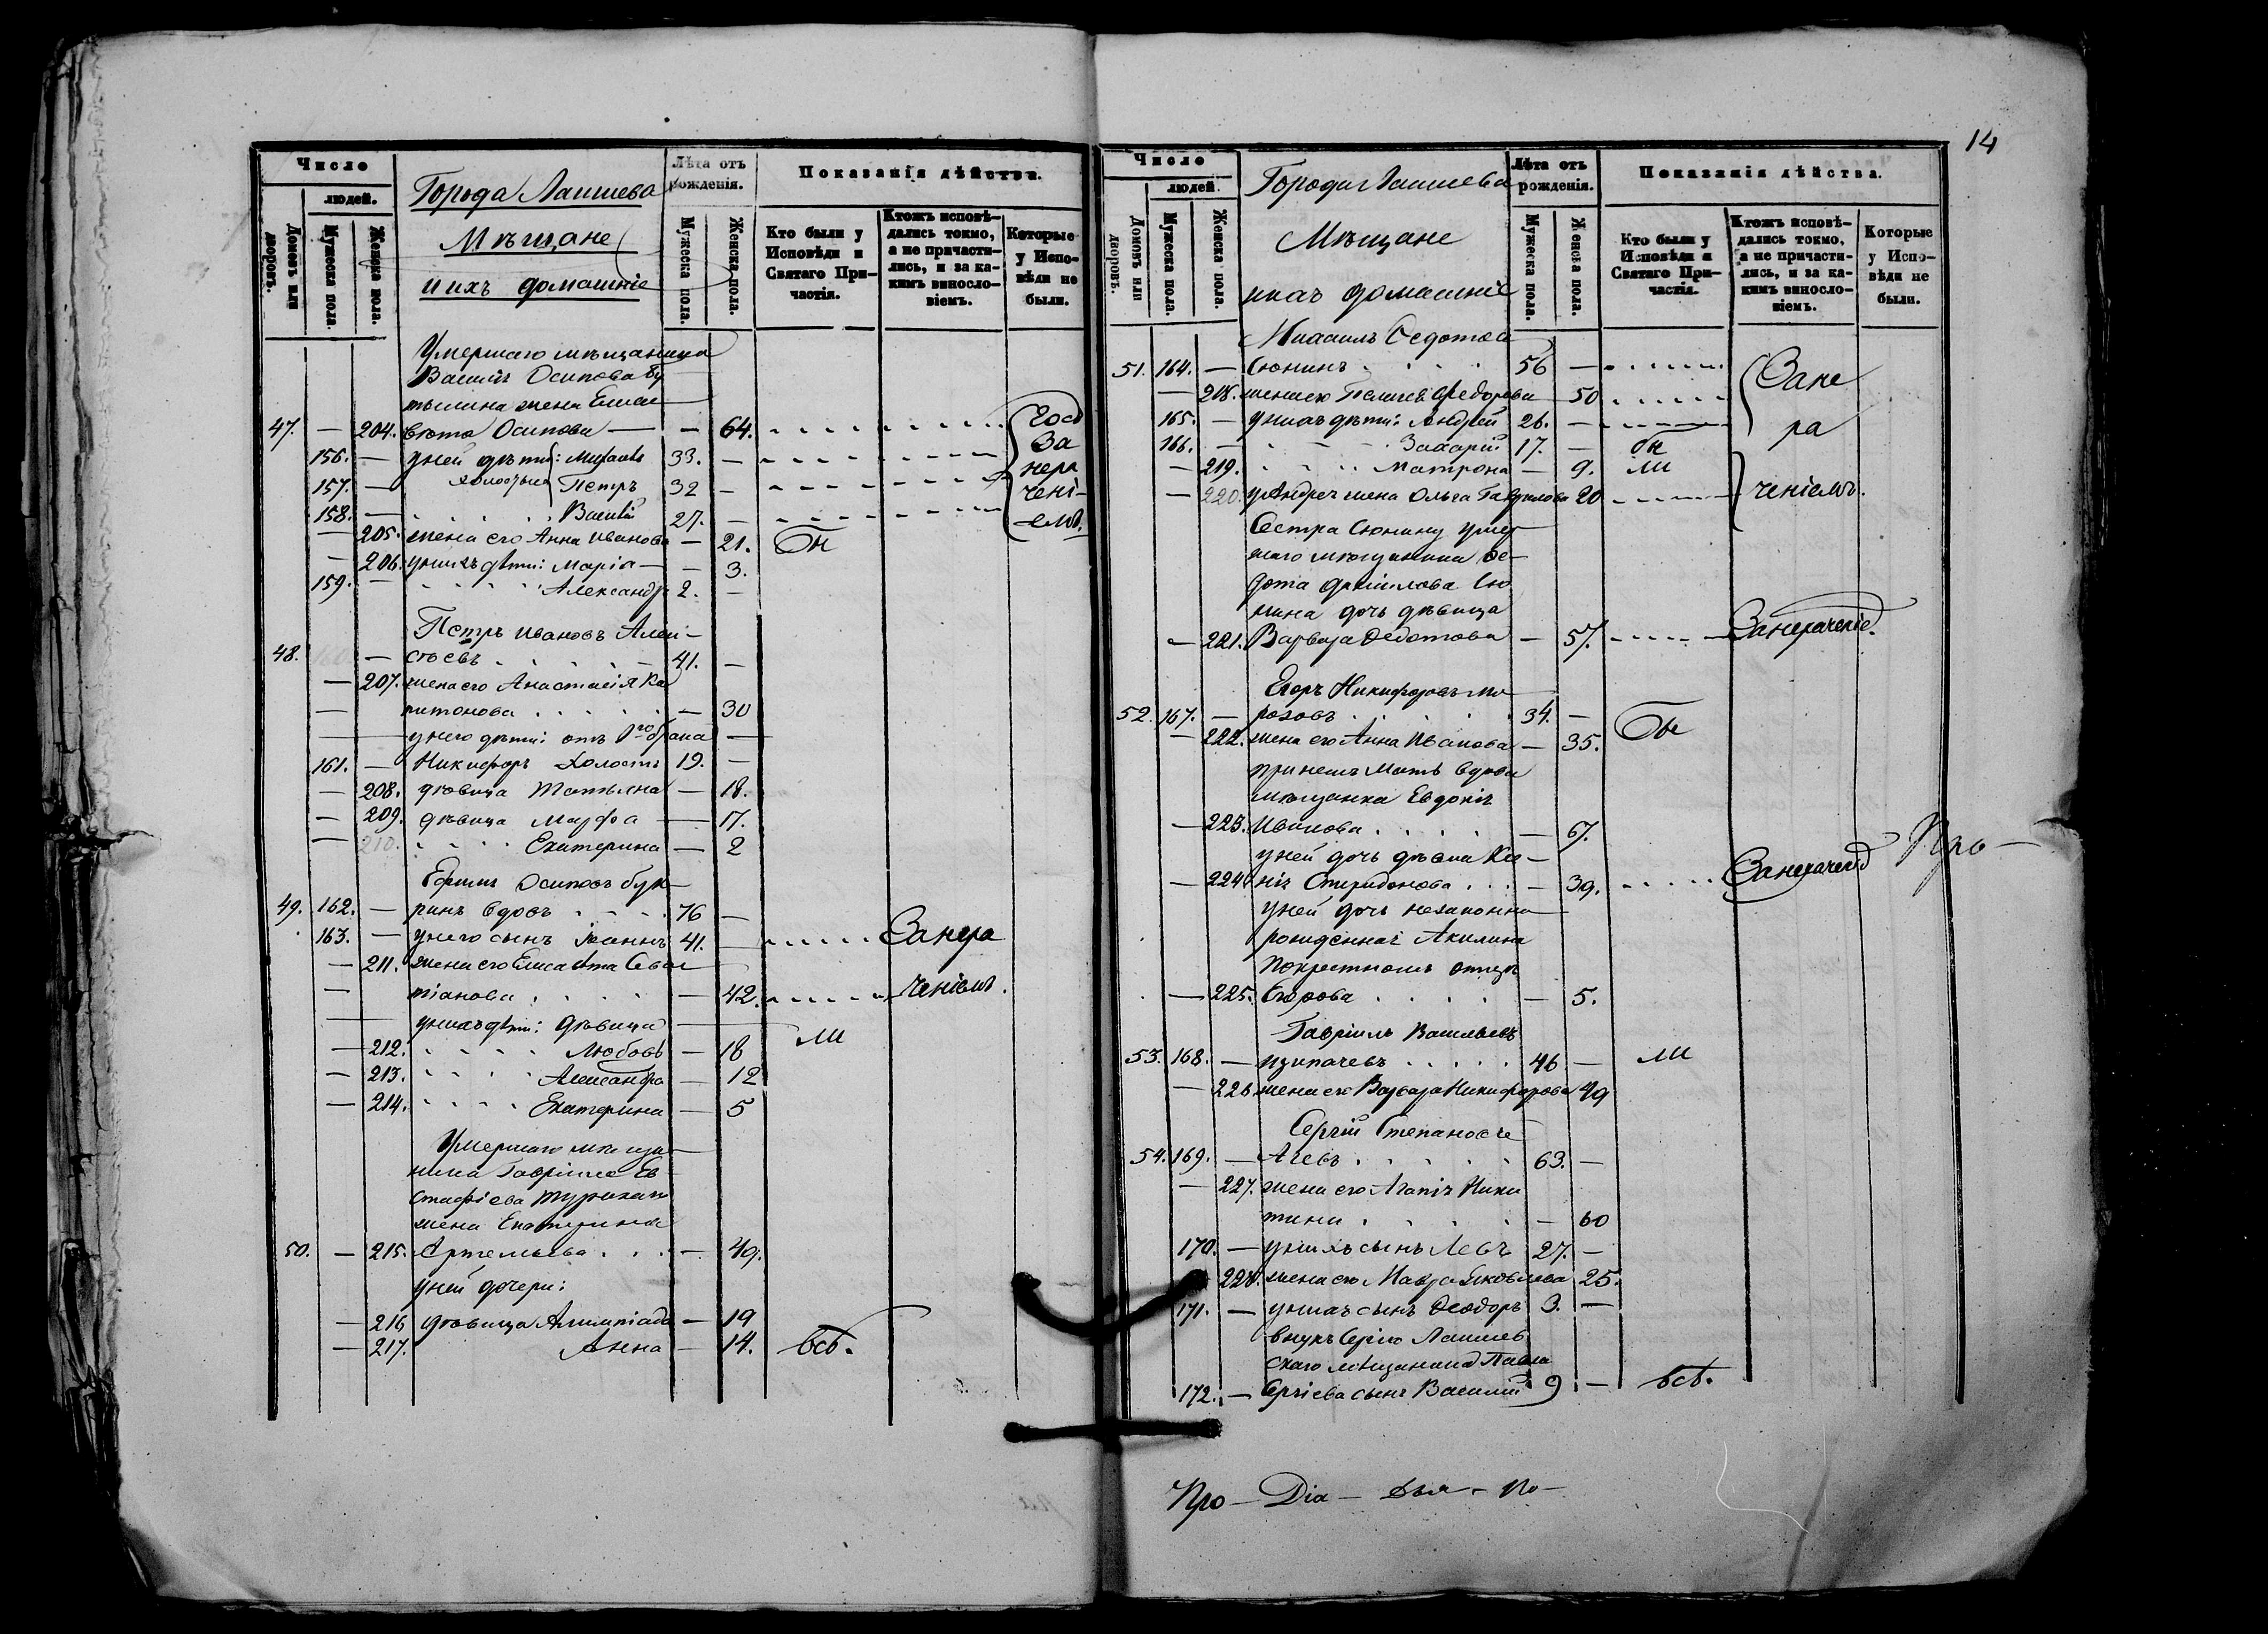 Число
людей.
Домовъ или дворовъ.
Мужеска пола.
Женска пола.
Города Лаишева
Мѣщане
и ихъ домашніе
Лѣта отъ рожденія.
Мужеска пола.
Женска пола.
Показанія дѣйства.
Кто были у Исповѣди и Святаго При-частія.
Ктожъ исповѣ-дались токмо, а не причасти-лись, и за ка-кимъ виносло-віемъ.
Которые у Испо-вѣди не были.
Умершаго мѣщанина
Василія Осипова
жена Елиса
47. — 204. вета Осипова — — 64.
156. — у ней дѣти: Михаилъ 33. —
157. — холостые Петръ 32 —
158. — Василій 27. —
— 205. жена его Анна Иванова — 21.
— 206. у нихъ дѣти: Марія — — 3.
159. — Александръ 2. —
За нера чені- емъ.
Петръ Ивановъ Алек-
48. 160. — сѣевъ 41. —
— 207. жена его Анастасія Ха
— ритонова — 30
у него дѣти: отъ 1го брака —
161. — Никифоръ Холостъ 19. —
— 208. дѣвица Татьяна — 18.
— 209. дѣвица Марфа — 17.
— 210. Екатерина — 2
Ефимъ Осиповъ
49. 162. — ринъ вдовъ 76 —
163. — у него сынъ Іоаннъ 41. —
— 211. жена его Елисавета Севас
— тіанова — 42.
За нера ченіемъ.
у нихъ дѣти: дѣвица
— 212. Любовь — 18
ли
— 213. Александра — 12
— 214. Екатерина — 5
Умершаго мѣща
нина Гавріила Ев
стафіева
жена Екатерина
50. — 215. Артемьева — 49.
у ней дочери:
— 216 дѣвица Алимпіада — 19
— 217. Анна — 14. всѣ.
14
Число
людей.
Домовъ или дворовъ.
Мужеска пола.
Женска пола.
Города Лаишева
Мѣщане
и ихъ домашніе
Лѣта отъ рожденія.
Мужеска пола.
Женска пола.
Показанія дѣйства.
Кто были у Исповѣди и Святаго При-частія.
Ктожъ исповѣ-дались токмо, а не причасти-лись, и за ка-кимъ виносло-віемъ.
Которые у Испо-вѣди не были.
Михаилъ Ѳедотов
51. 164. — Сюнинъ 56 —
— 218. жена его Пелагея Ѳедорова 50
165. — у нихъ дѣти: Андрей 26. —
166. — Захарій 17. — бы
— 219. Матрона — 9. ли
— 220. у Андрея жена Ольга Гаврилова 20
За не ра ченіемъ.
Сестра Сюнину умер
шаго мѣщанина Ѳе-
дота Данилова Сю
нина дочь дѣвица
— 221. Варвара Ѳедотова — 57. За нераченіе.
Егоръ Никифоровъ Мо
52. 167. — розовъ 34. —
— 222. жена его Анна Иванова — 35.
при немъ Мать вдова
мѣщанка Евдокія
— 223. Иванова — 67.
у ней дочь дѣвица Ксе-
— 224. нія Спиридонова — 39.
у ней дочь незаконно
рожденная Акилина
по крестномъ отцѣ
— 225. Егорова — 5.
Гавріилъ Васильевъ
53. 168. — 46 — ли
— 226 жена его Варвара Никифорова 49
Сергій Степановъ
54. 169. — 63. —
— 227. жена его Агапія Ники
тина — 60
170. — у нихъ сынъ Левъ 27. —
228. жена его Мавра Яковлева 25.
171. — у нихъ сынъ Ѳеодоръ 3. —
внукъ Сергію Лаишев
скаго мѣщанина Павла
172. — Сергіева сынъ Василій 9 — всѣ.
Про —
Про — Dіа — Дья — По —